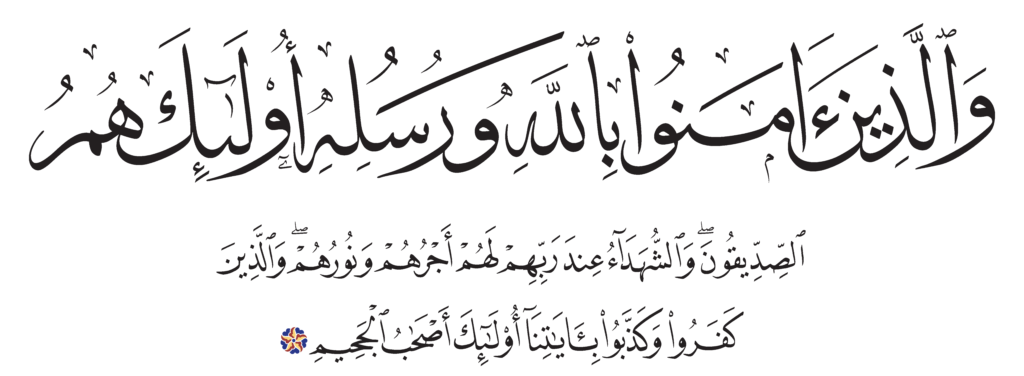 وَٱلَّذِينَ ءَامَنُوا۟ بِٱللَّهِ وَرُسُلِهِۦٓ أُو۟لَـٰٓئِكَ هُمُ
ٱلصِّدِّيقُونَ ۖ وَٱلشُّهَدَآءُ عِندَ رَبِّهِمْ لَهُمْ أَجْرُهُمْ وَنُورُهُمْ ۖ وَٱلَّذِينَ
كَفَرُوا۟ وَكَذَّبُوا۟ بِـَٔايَـٰتِنَآ أُو۟لَـٰٓئِكَ أَصْحَـٰبُ ٱلْجَحِيمِ